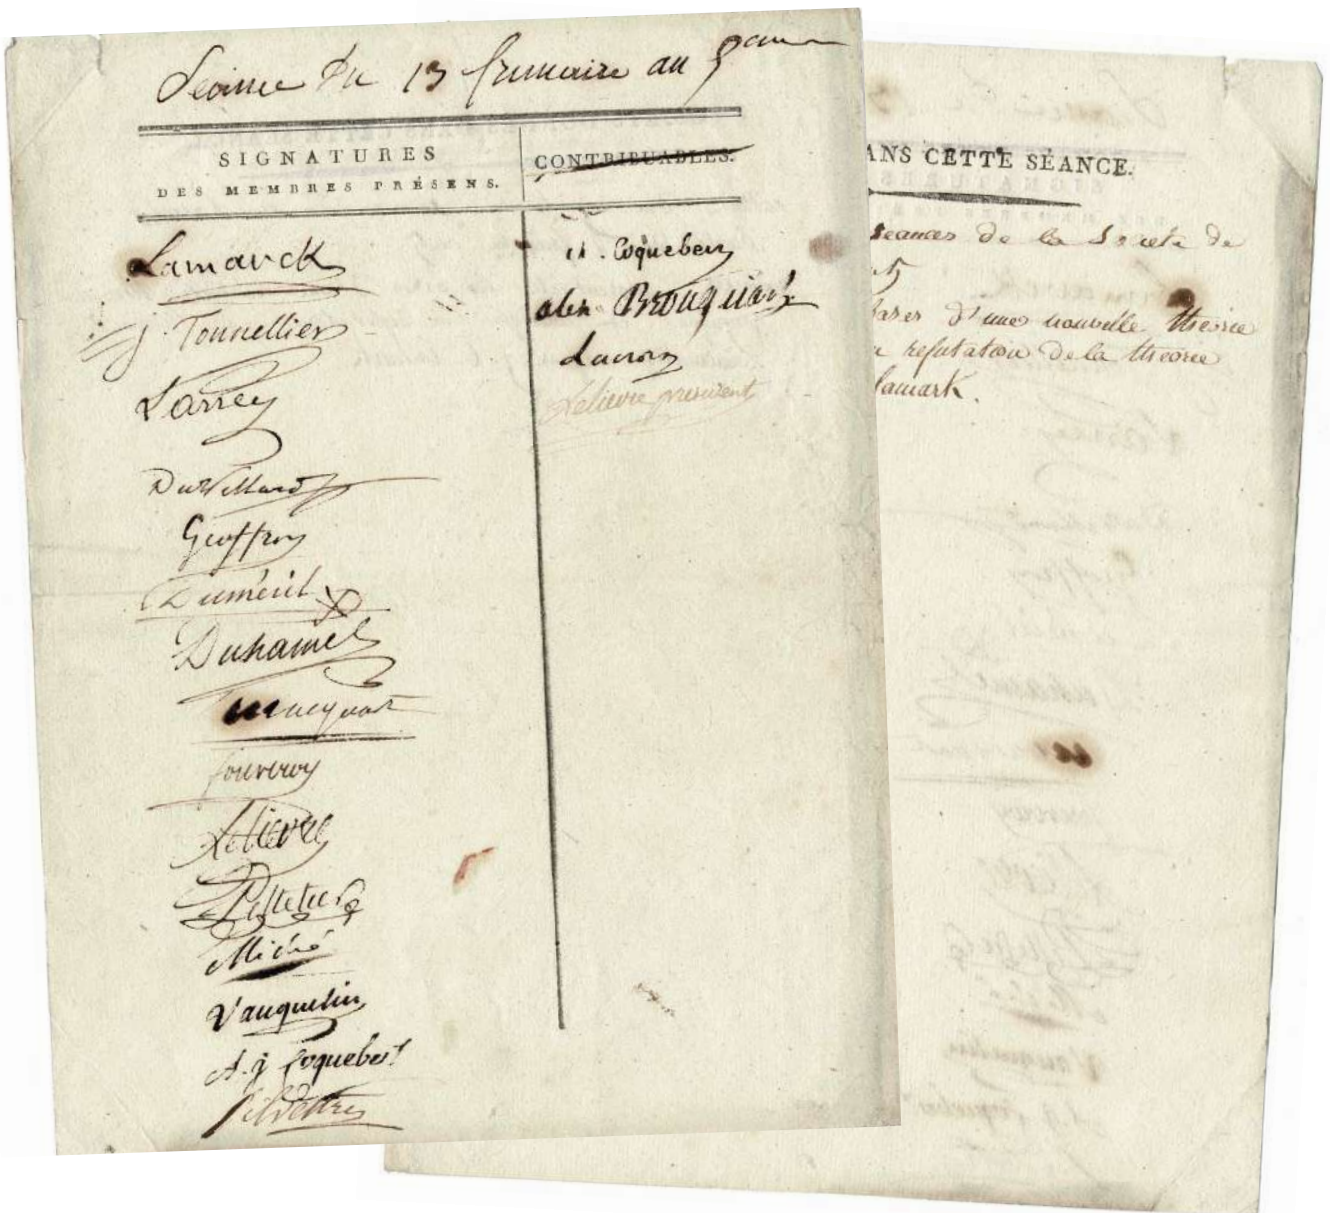 Séance du 13 frimaire an 5eme
SIGNATURES
DES MEMBRES PRÉSENS.
CONTRIBUABLES.
Lamarck
j. Tonnellier
Larrey
Duvillard
Geoffroy
Duméril
Duhamel
Macquart
fourcroy
Lelievre
Pelletier
Miché
Vauquelin
A. j Coquebert
Silvestre
ch. Coquebert
alex. Brongniart
Lacroix
Lelievre president
ANS CETTE SÉANCE.
seances de la Societe de
bases d'une nouvelle theorie
refutation de la theorie
lamark.